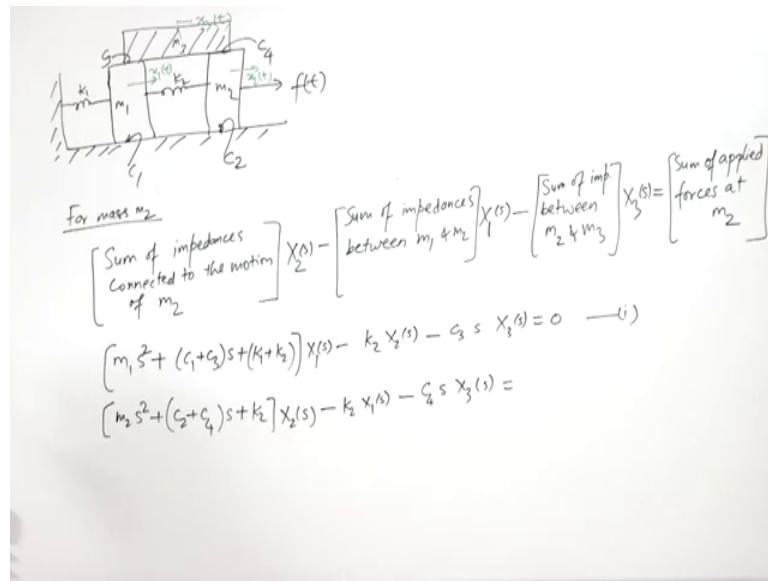 x₃(t)
m₃
C₃
C₄
k₁
x₁(t)
k₂
x₂(t)
m₁
m₂
f(t)
C₁
C₂
For mass m₂
[Sum of impedances connected to the motion of m₂] X₂(s) - [Sum of impedances between m₁ & m₂] X₁(s) - [Sum of imp. between m₂ & m₃] X₃(s) = [Sum of applied forces at m₂]
[m₁s² + (C₁+C₃)s + (k₁+k₂)] X₁(s) - k₂ X₂(s) - C₃ s X₃(s) = 0 —(i)
[m₂s² + (C₂+C₄)s + k₂] X₂(s) - k₂ X₁(s) - C₄ s X₃(s) =